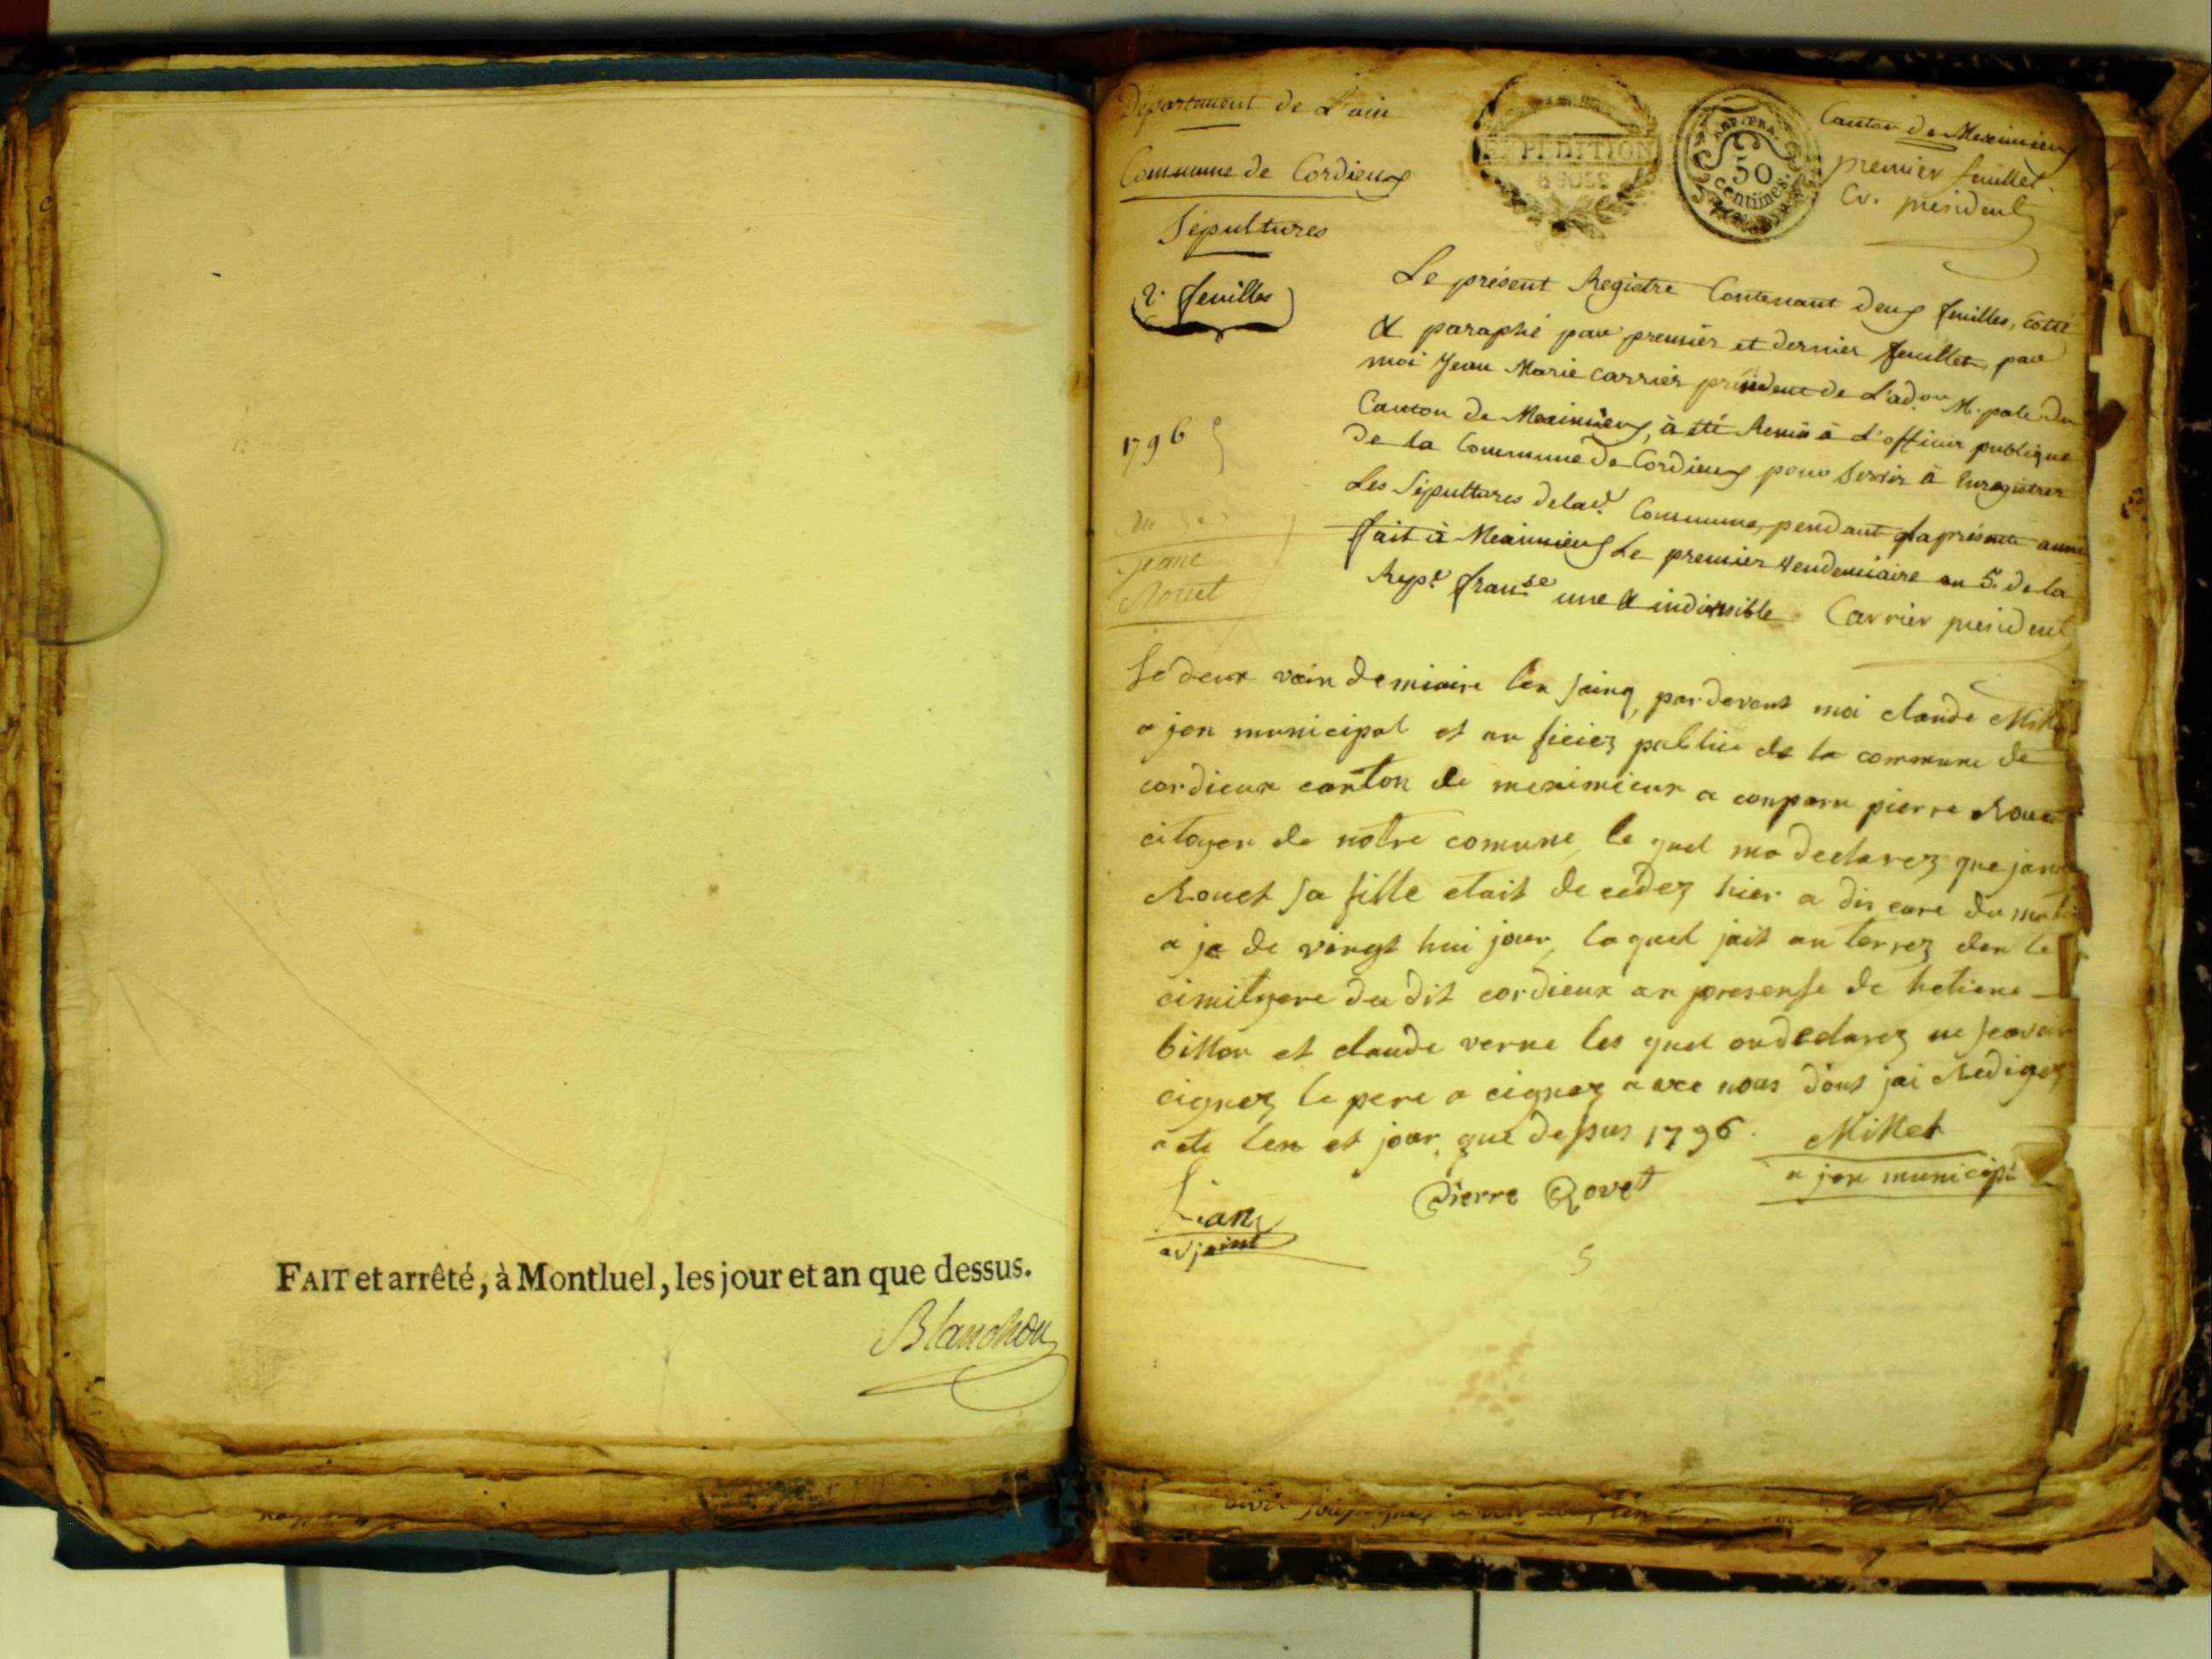 FAIT et arrêté, à Montluel, les jour et an que dessus.
Blanchon
Département de L'ain
Commune de Cordieux
Sépultures
2. feuilles
1796
EXPEDITION
REP. FRA.
50
centimes.
Canton de Meximieux
premier feuillet.
Cr. président
Le présent Registre Contenant deux feuilles, Cotté
& paraphé par premier et dernier feuillet, par
moi Jean Marie Carrier président de L'ad.on M.pale du
Canton de Meximieux, à été Remis à L'officier publique
de la Commune de Cordieux pour Servir à Enregistrer
Les Sépultures de lad. Commune, pendant la présente année
fait à Meximieux Le premier Vendemiaire an 5. de la
Rép.e fran.se une & indivisible Carrier president
Jeane
Rouet
Le deux vain demiaire len saing, par devant moi claude Millet
a jen municipal et au ficiez publie de la commune de
cordieux canton de meximieux a conparu pierre Rouet
citoyen de notre comune le quel ma declarez que jane
Rouet sa fille etait de cedez hier a dis eure du matin
a je de vingt hui jour, la quel jait an terrez dan le
cimityere du dit cordieux an presense de hetiene
billon et claude verne les quel on declarez ne scavoir
cignez le pere a cignez avec nous dont jai Redigez
acte len et jour que dessus 1796. Millet
a jen municipal
Pierre Rovet
Lian
adjoint
5